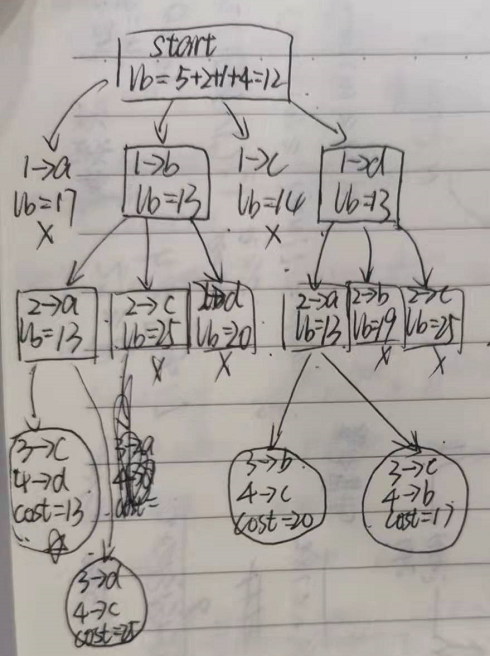 start
lb=5+2+1+4=12
1→a
lb=17
X
1→b
lb=13
1→c
lb=14
X
1→d
lb=13
2→a
lb=13
2→c
lb=25
X
2→d
lb=20
X
2→a
lb=13
2→b
lb=19
X
2→c
lb=25
X
3→c
4→d
cost=13
3→d
4→c
cost=25
3→b
4→c
cost=20
3→c
4→b